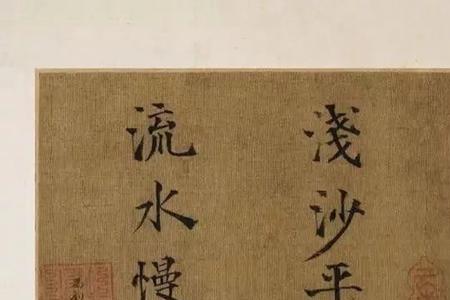 淺沙平
流水慢